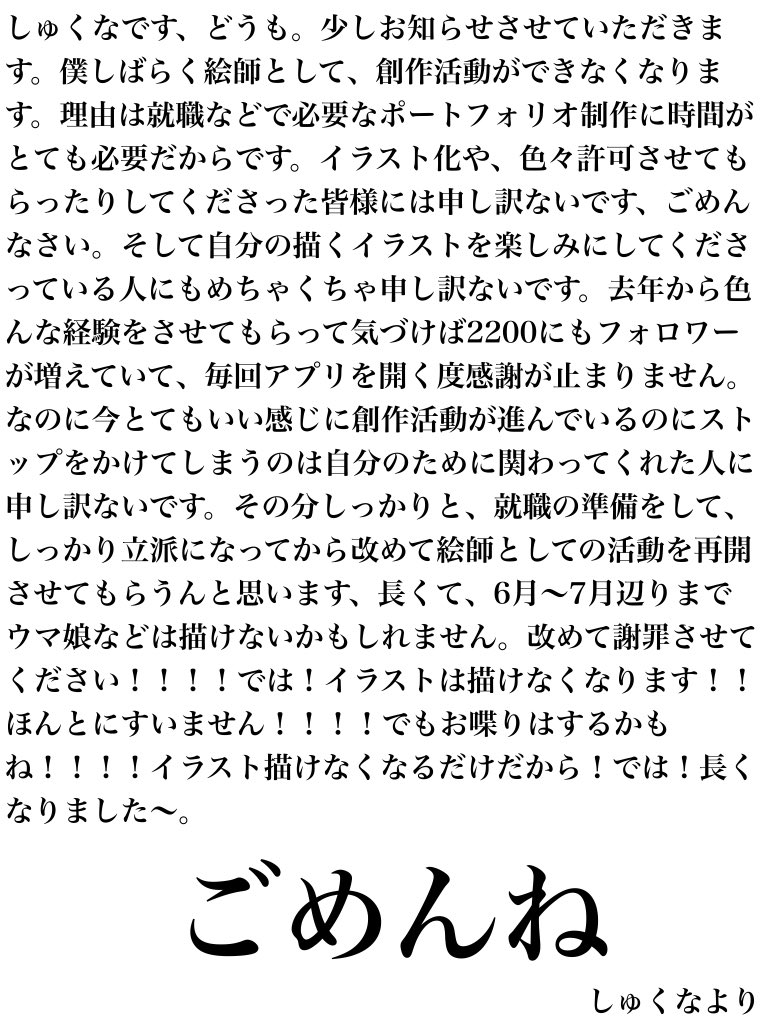 しゅくなです、どうも。少しお知らせさせていただきま
す。僕しばらく絵師として、創作活動ができなくなりま
す。理由は就職などで必要なポートフォリオ制作に時間が
とても必要だからです。イラスト化や、色々許可させても
らったりしてくださった皆様には申し訳ないです、ごめん
なさい。そして自分の描くイラストを楽しみにしてくださ
っている人にもめちゃくちゃ申し訳ないです。去年から色
んな経験をさせてもらって気づけば2200にもフォロワー
が増えていて、毎回アプリを開く度感謝が止まりません。
なのに今とてもいい感じに創作活動が進んでいるのにスト
ップをかけてしまうのは自分のために関わってくれた人に
申し訳ないです。その分しっかりと、就職の準備をして、
しっかり立派になってから改めて絵師としての活動を再開
させてもらうんと思います、長くて、6月〜7月辺りまで
ウマ娘などは描けないかもしれません。改めて謝罪させて
ください！！！！では！イラストは描けなくなります！！
ほんとにすいません！！！！でもお喋りはするかも
ね！！！！イラスト描けなくなるだけだから！では！長く
なりました〜。
ごめんね
しゅくなより